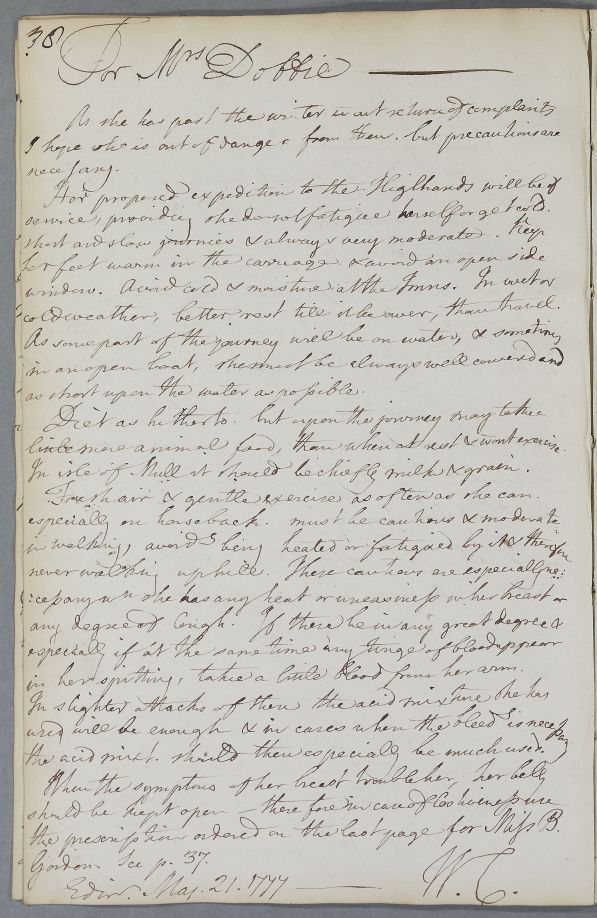 38
For Mrs Dobbie
As she has past the winter wt out return of complaints
I hope she is out of danger from them. but precautions are
necessary.
Her proposed expedition to the Highlands will be of
service, providing she does not fatigue herself or get cold.
short and slow journies & always very moderate. Keep
her feet warm in the carriage & avoid an open side
window. Avoid cold & moisture at the Inns. In wet or
cold weather, better rest till it be over, than travel.
As some part of the journey will be on water, & sometimes
in an open boat, she must be always well covered and
as short upon the water as possible.
Diet as hitherto. but upon the journey may take a
little more animal food, than when at rest & wout exercise.
In isle of Mull it should be chiefly milk & grain.
Fresh air & gentle exercise as often as she can.
especially on horseback. must be cautious & moderate
in walking, avoidg being heated or fatigued by it & therefore
never walking up hill. These cautions are especially ne:
:cessary wn she has any heat or uneasiness in her breast or
any degree of cough. If these be in any great degree &
especially if at the same time any tinge of blood appear
in her spitting, take a little blood from her arm.
In slighter attacks of them the acid mixture she has
used will be enough & in cases when the bleedg is necessary
the acid mixt. should then especially be much used.
When the symptoms of her breast trouble her, her belly
should be kept open therefore in case of Costiveness use
the prescription ordered on the last page for Miss B.
Gordon. See p. 37.
Edinr. May. 21. 1777
W. C.